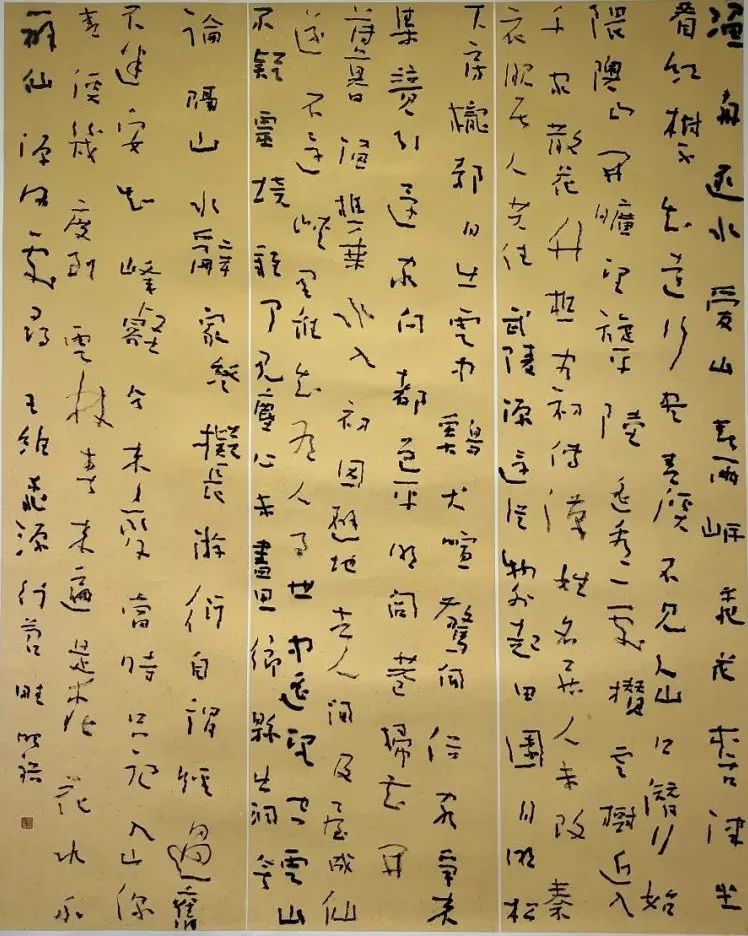 漁舟逐水愛山春兩岸桃花夾古津坐
看紅樹不知遠行盡青溪不見人山口潛行始
隈隩山開曠望旋平陸遙看一處攢雲樹近入
千家散花竹樵客初傳漢姓名居人未改秦
衣服居人共住武陵源還從物外起田園月明松
下房櫳靜日出雲中雞犬喧驚聞俗客爭來
集競引還家問都邑平明閭巷掃花開
薄暮漁樵乘水入初因避地去人間及至成仙
遂不還峽裏誰知有人事世中遙望空雲山
不疑靈境難聞見塵心未盡思鄉縣出洞無
論隔山水辭家終擬長游衍自謂經過舊
不迷安知峰壑今來變當時只記入山深
青溪幾度到雲林春來遍是桃花水不
辨仙源何處尋王維桃源行